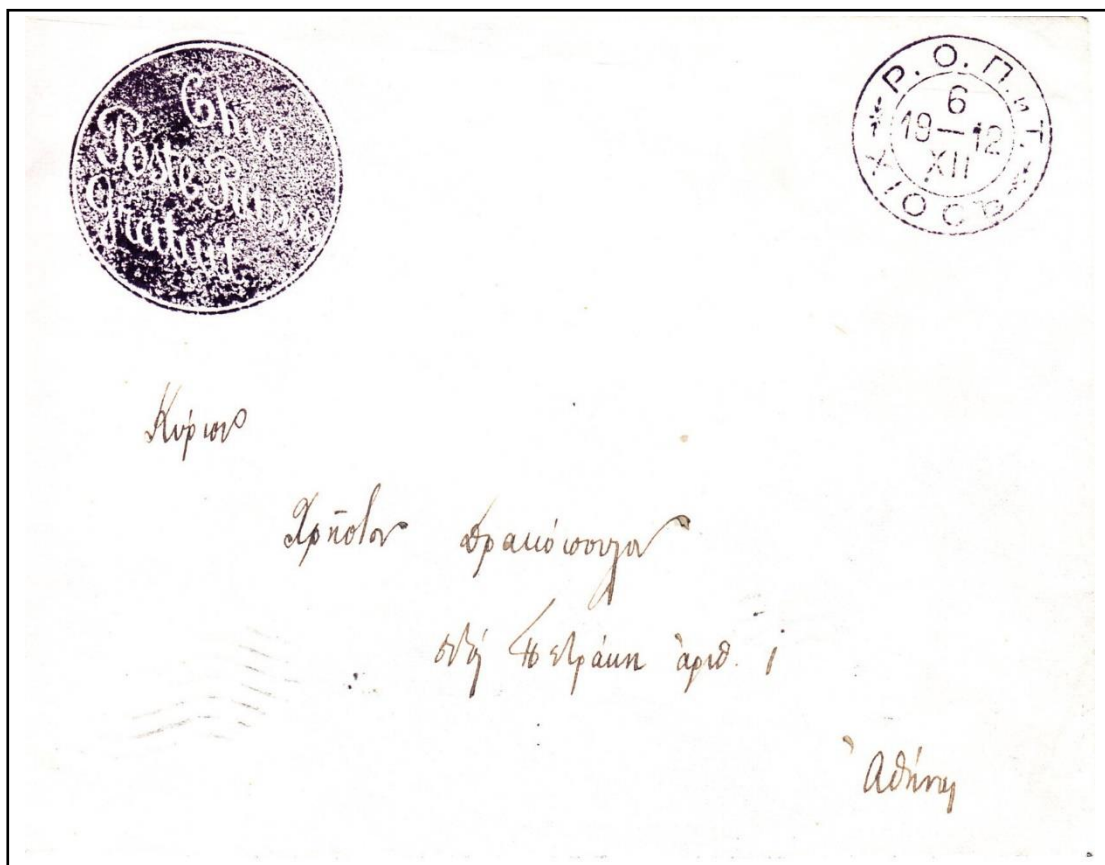 Chio
Poste Russe
gratuit
Р. О. П. и Т.
6
19—12
XII
ХІОСЪ
Κύριον
Χρῆστον
Πετράκη ἀριθ. 1
Ἀθήνας